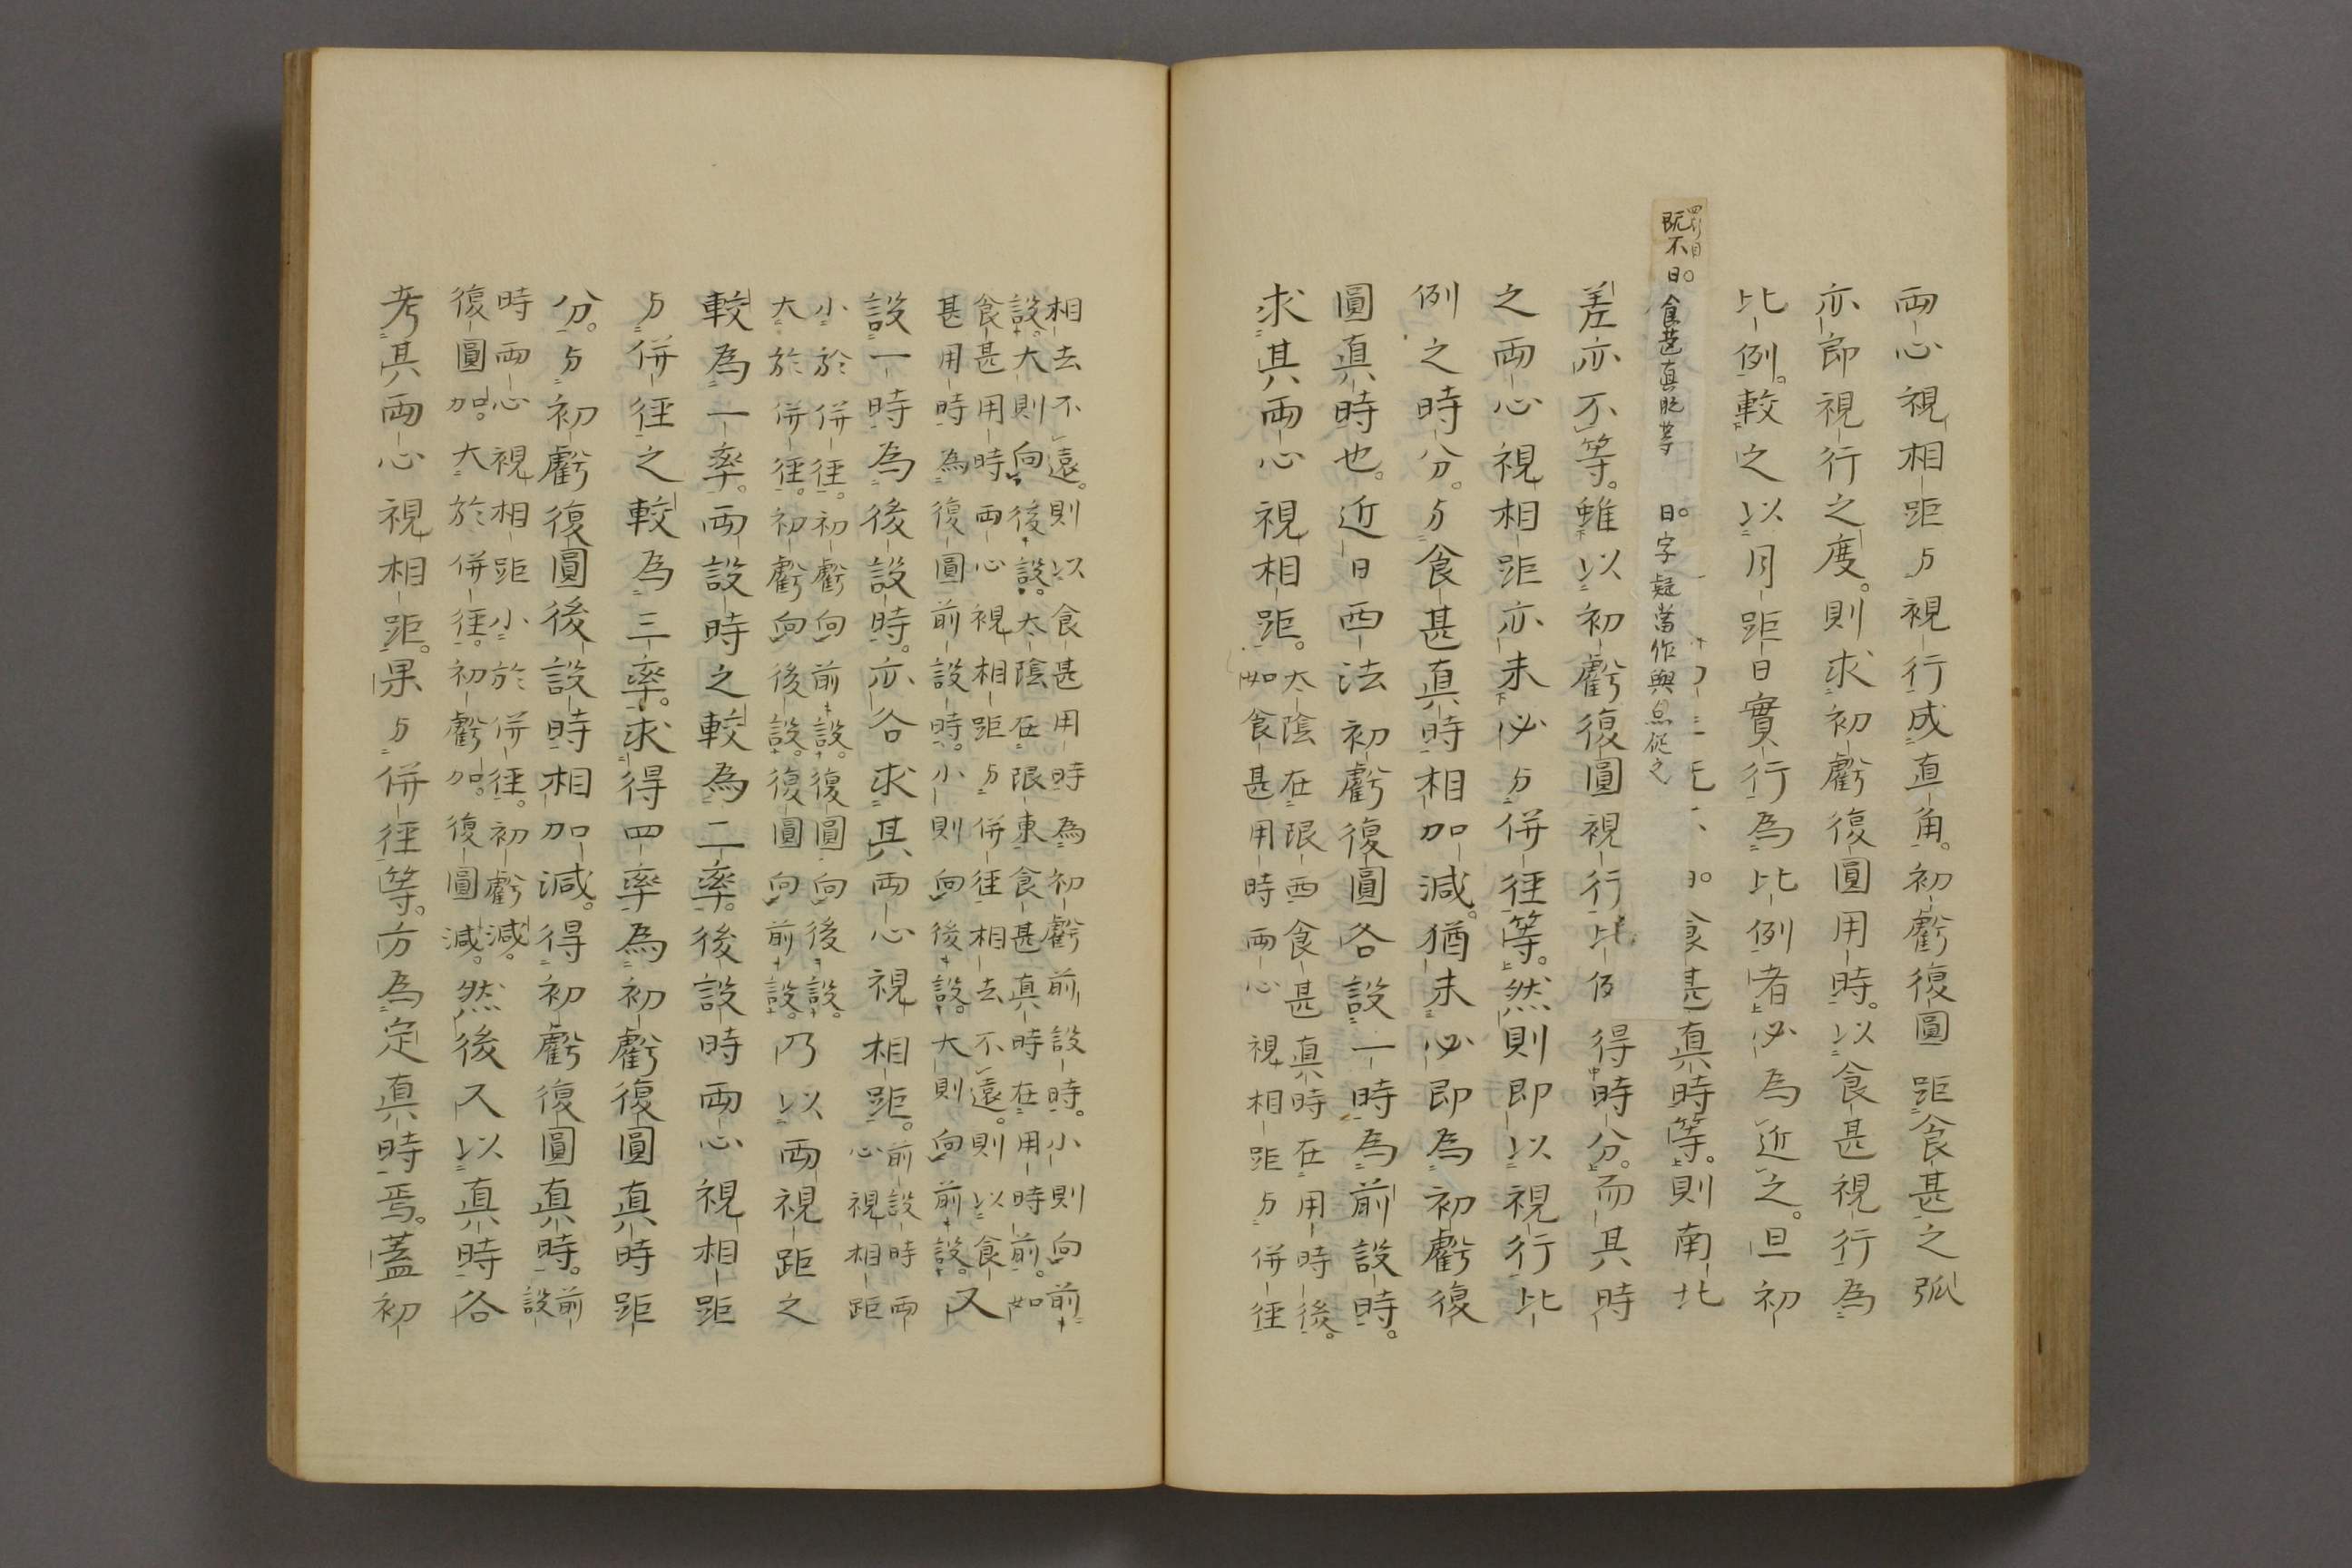 両心視相距与視行成直角。初虧復圓距食甚之弧
亦即視行之度。則求初虧復圓用時。以食甚視行為
比例。較之以月距日實行為比例者必為近之。但初
四行目
既不日。食甚真時等 日。字疑當作與点従之
食甚真時等。則南北
差亦不等。雖以初虧復圓視行比例得時分。而其時
之両心視相距亦未必与併徑等。然則即以視行比
例之時分。与食甚真時相加減。猶未必即為初虧復
圓真時也。近日西法初虧復圓各設一時為前設時。
求其両心視相距。
太陰在限西食甚真時在用時後。
如食甚用時両心視相距与併徑
相去不遠。則以食甚用時為初虧前設時。小則向前
設。大則向後設。太陰在限東食甚真時在用時前。如
食甚用時両心視相距与併徑相去不遠。則以食
甚用時為復圓前設時。小則向後設。大則向前設。又
設一時為後設時。亦各求其両心視相距。
前設時両
心視相距
小於併徑。初虧向前設。復圓向後設。
大於併徑。初虧向後設。復圓向前設。
乃以両視距之
較為一率。両設時之較為二率。後設時両心視相距
与併徑之較為三率。求得四率為初虧復圓真時距
分。与初虧復圓後設時相加減。得初虧復圓真時。
前
設
時両心視相距小於併徑。初虧減。
復圓加。大於併徑。初虧加。復圓減。
然後又以真時各
考其両心視相距。果与併徑等。方為定真時焉。蓋初